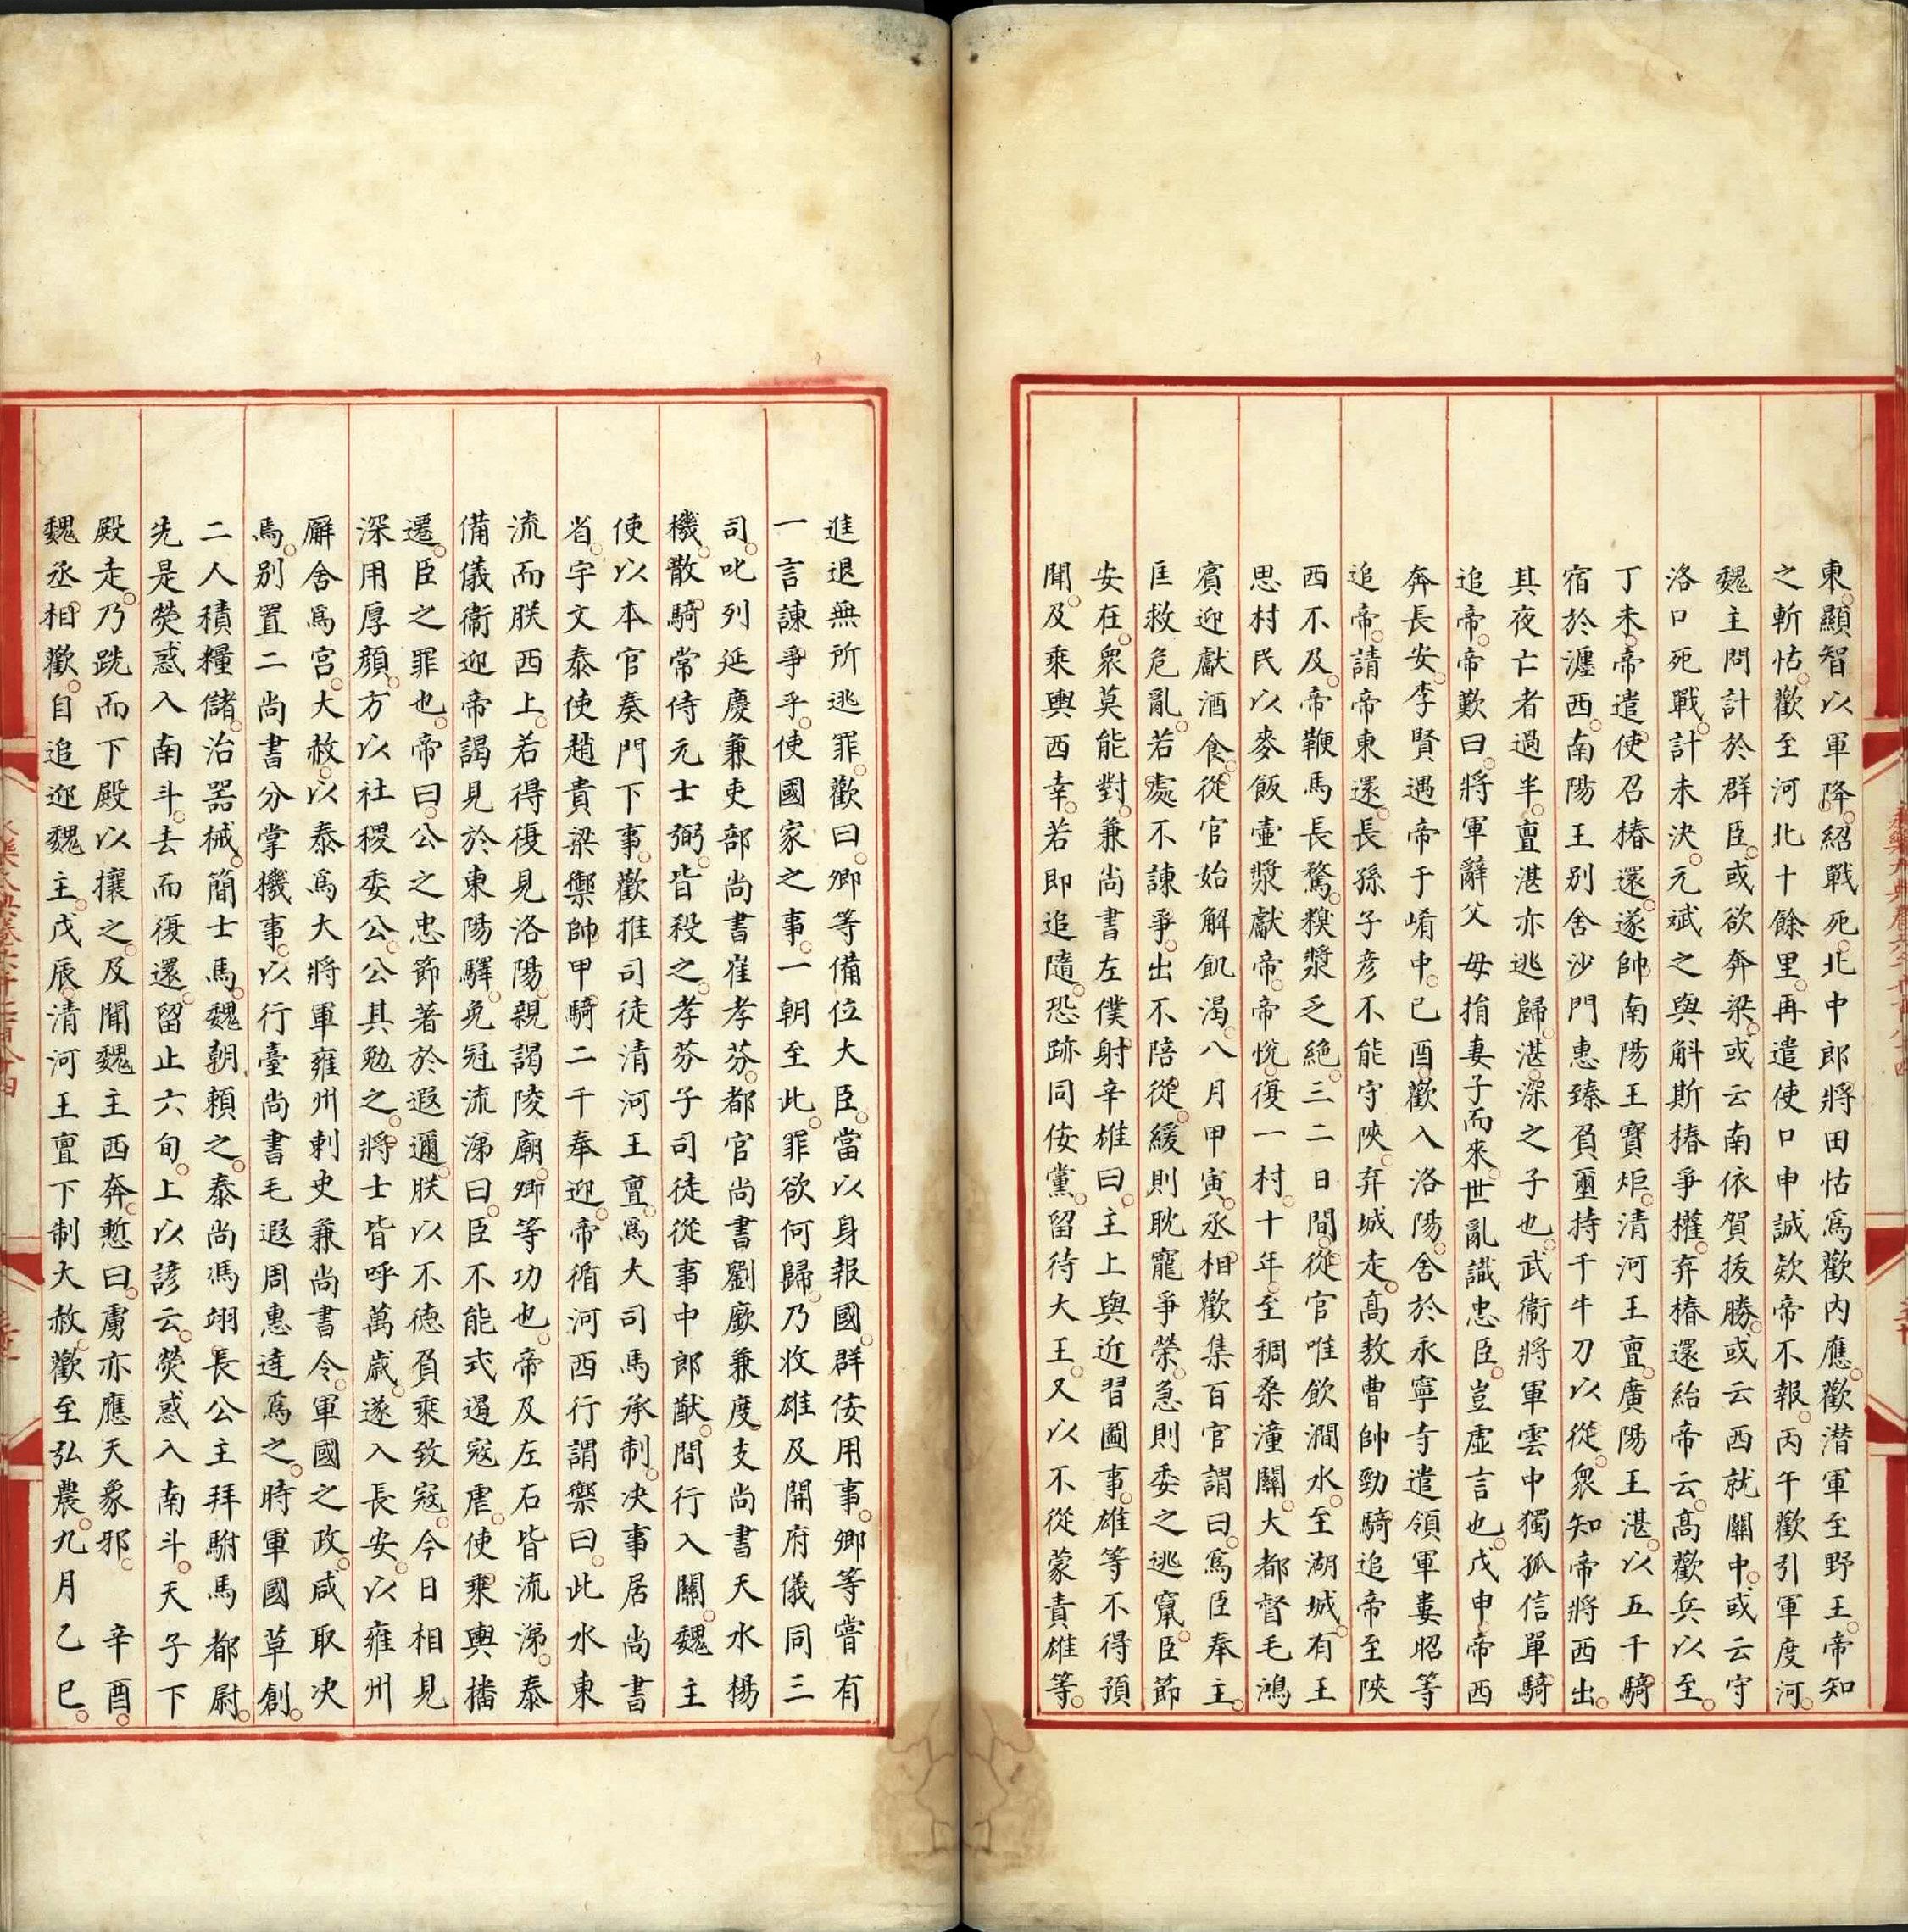 東顯智以軍降紹戰死北中郎將田怙爲歡内應歡潜軍至野王帝知
之斬怙歡至河北十餘里再遣使口申誠欵帝不報丙午歡引軍度河
魏主問計於群臣或欲奔梁或云南依賀拔勝或云西就關中或云守
洛口死戰計未決元斌之與斛斯椿爭權弃椿還紿帝云高歡兵以至
丁未帝遣使召椿還遂帥南陽王寶炬清河王亶廣陽王湛以五千騎
宿於瀍西南陽王别舍沙門惠臻負璽持千牛刀以從衆知帝將西出
其夜亡者過半亶湛亦逃歸湛深之子也武衞將軍雲中獨孤信單騎
追帝帝歎曰將軍辭父母捐妻子而來世亂識忠臣豈虚言也戊申帝西
奔長安李賢遇帝于崤中已酉歡入洛陽舍於永寧寺遣領軍婁昭等
追帝請帝東還長孫子彦不能守陜弃城走高敖曹帥勁騎追帝至陜
西不及帝鞭馬長騖糗漿乏絶三二日間從官唯飲澗水至湖城有王
思村民以麥飯壷漿獻帝帝悦復一村十年至稠桑潼關大都督毛鴻
賓迎獻酒食從官始解飢渇八月甲寅丞相歡集百官謂曰爲臣奉主
匡救危亂若處不諫爭出不陪從緩則耽寵爭榮急則委之逃竄臣節
安在衆莫能對兼尚書左僕射辛雄曰主上與近習圖事雄等不得預
聞及乘輿西幸若即追隨恐跡同佞黨留待大王又以不從蒙責雄等
進退無所逃罪歡曰卿等備位大臣當以身報國群佞用事卿等嘗有
一言諫爭乎使國家之事一朝至此罪欲何歸乃收雄及開府儀同三
司叱列延慶兼吏部尚書崔孝芬都官尚書劉廞兼度支尚書天水楊
機散騎常侍元士弼皆殺之孝芬子司徒從事中郎猷間行入關魏主
使以本官奏門下事歡推司徒清河王亶爲大司馬承制决事居尚書
省宇文泰使趙貴梁禦帥甲騎二千奉迎帝循河西行謂禦曰此水東
流而朕西上若得復見洛陽親謁陵廟卿等功也帝及左右皆流涕泰
備儀衞迎帝謁見於東陽驛免冠流涕曰臣不能式遏寇虐使乘輿播
遷臣之罪也帝曰公之忠節著於遐邇朕以不德負乘致寇今日相見
深用厚顔方以社稷委公公其勉之將士皆呼萬歳遂入長安以雍州
廨舍爲宫大赦以泰爲大將軍雍州刺史兼尚書令軍國之政咸取决
焉别置二尚書分掌機事以行臺尚書毛遐周惠逹爲之時軍國草創
二人積糧儲治器械簡士馬魏朝頼之泰尚馮翊長公主拜駙馬都尉
先是熒惑入南斗去而復還留止六旬上以諺云熒惑入南斗天子下
殿走乃跣而下殿以攘之及聞魏主西奔慙曰虜亦應天象邪　辛酉
魏丞相歡自追迎魏主戊辰清河王亶下制大赦歡至弘農九月乙巳